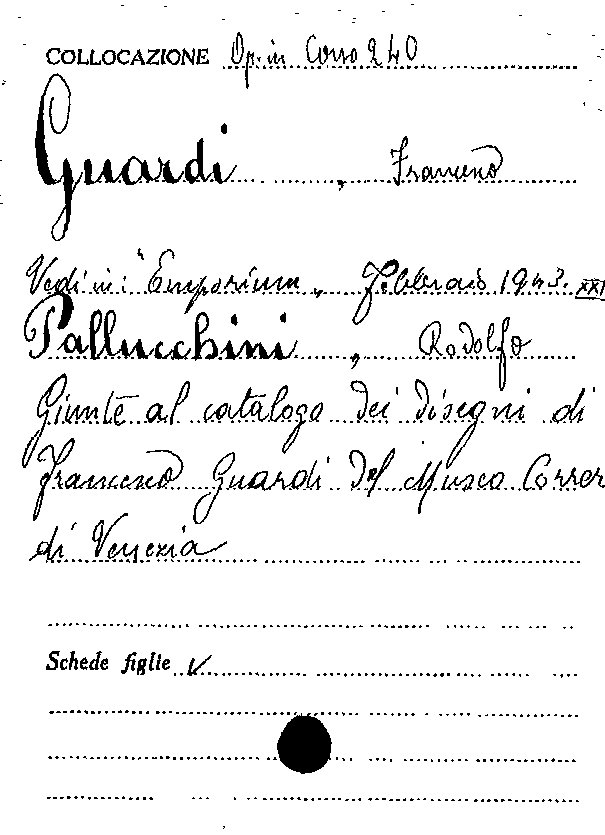 COLLOCAZIONE Op. in Corso 240
Guardi, Francesco
Vedi in: "Emporium" Febbraio 1943. XXI
Pallucchini, Rodolfo
Giunte al catalogo dei disegni di
Francesco Guardi del Museo Correr
di Venezia
Schede figlie ✓